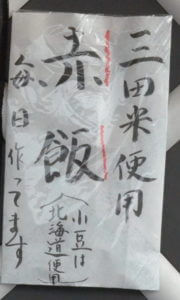 三田米使用
赤飯
(小豆は
北海道使用)
毎日作ってます